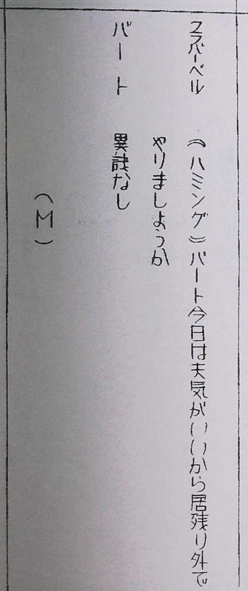 《ハミング》バート今日は天気がいいから居残り外で
やりましょうか
バート 異議なし
(M)